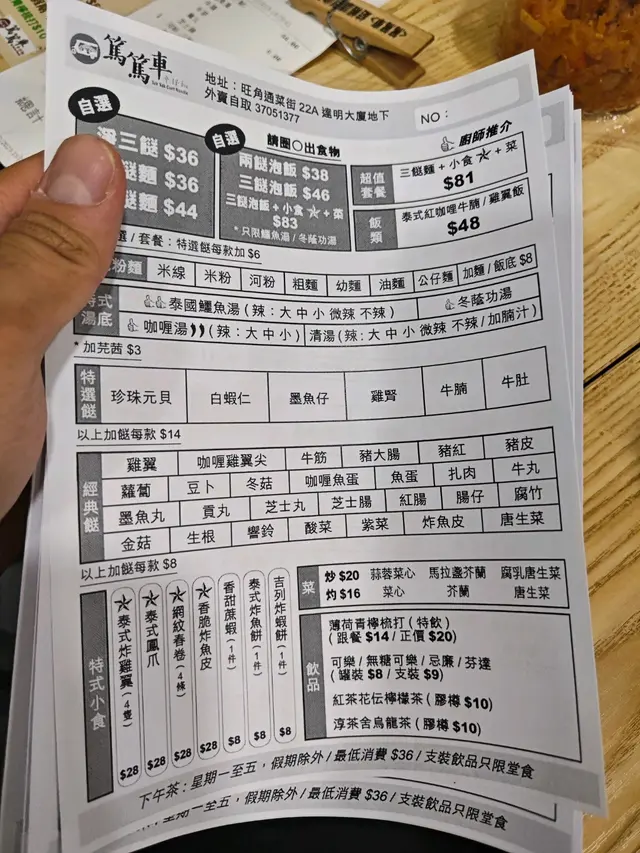 篤篤車
車仔麵
地址：旺角通菜街 22A 達明大廈地下
外賣自取 37051377
NO：
自選
三餸 $36
餸麵 $36
餸麵 $44
自選
請圈○出食物
兩餸泡飯 $38
三餸泡飯 $46
三餸泡飯 + 小食 ★ + 菜
$83
* 只限鱷魚湯 / 冬蔭功湯
廚師推介
超值套餐
三餸麵 + 小食 ★ + 菜
$81
飯類
泰式紅咖哩牛腩 / 雞翼飯
$48
選 / 套餐：特選餸每款加 $6
粉麵 米線 米粉 河粉 粗麵 幼麵 油麵 公仔麵 加麵 / 飯底 $8
特式湯底
泰國鱷魚湯 (辣：大 中 小 微辣 不辣)
冬蔭功湯
咖喱湯 (辣：大 中 小)
清湯 (辣：大 中 小 微辣 不辣 / 加腩汁)
* 加芫茜 $3
特選餸
珍珠元貝 白蝦仁 墨魚仔 雞腎 牛腩 牛肚
以上加餸每款 $14
經典餸
雞翼 咖喱雞翼尖 牛筋 豬大腸 豬紅 豬皮
蘿蔔 豆卜 冬菇 咖喱魚蛋 魚蛋 扎肉 牛丸
墨魚丸 貢丸 芝士丸 芝士腸 紅腸 腸仔 腐竹
金菇 生根 響鈴 酸菜 紫菜 炸魚皮 唐生菜
以上加餸每款 $8
特式小食
★泰式炸雞翼 (4隻) $28
★泰式鳳爪 $28
★網紋春卷 (4條) $28
★香脆炸魚皮 $28
香甜蔗蝦 (1件) $8
泰式炸魚餅 (1件) $8
吉列炸蝦餅 (1件) $8
菜
炒 $20 蒜蓉菜心 馬拉盞芥蘭 腐乳唐生菜
灼 $16 菜心 芥蘭 唐生菜
飲品
薄荷青檸梳打 (特飲)
(跟餐 $14 / 正價 $20)
可樂 / 無糖可樂 / 忌廉 / 芬達
(罐裝 $8 / 支裝 $9)
紅茶花伝檸檬茶 (膠樽 $10)
淳茶舍烏龍茶 (膠樽 $10)
下午茶：星期一至五，假期除外 / 最低消費 $36 / 支裝飲品只限堂食
星期一至五，假期除外 / 最低消費 $36 / 支裝飲品只限堂食